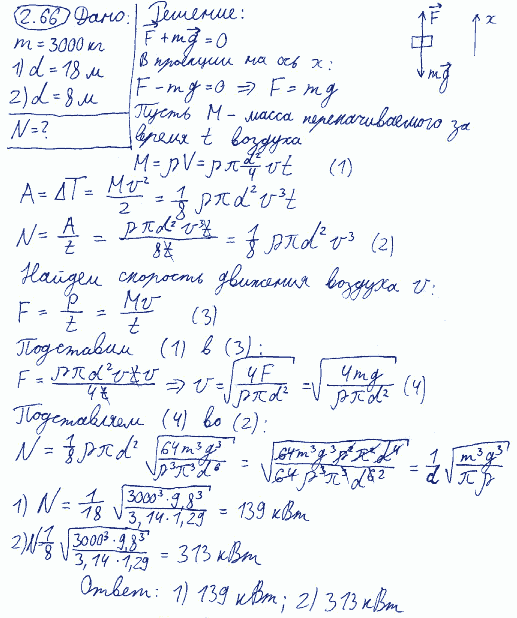 2.66 Дано:
m = 3000 кг
1) d = 18 м
2) d = 8 м
N = ?
Решение:
F⃗ + mg⃗ = 0
В проекции на ось x:
F - mg = 0 ⇒ F = mg
Пусть M - масса перекачиваемого за
время t воздуха
M = ρV = ρπ d²/4 vt (1)
F⃗
mg⃗
x
A = ΔT = Mv²/2 = 1/8 ρπd²v³t
N = A/t = ρπd²v³t/8t = 1/8 ρπd²v³ (2)
Найдем скорость движения воздуха v:
F = p/t = Mv/t (3)
Подставим (1) в (3):
F = ρπd²vtv/4t ⇒ v = √(4F/ρπd²) = √(4mg/ρπd²) (4)
Подставляем (4) во (2):
N = 1/8 ρπd² √(64m³g³/ρ³π³d⁶) = √(64m³g³ρ²π²d⁴/64ρ³π³d⁶²) = 1/d √(m³g³/πρ)
1) N = 1/18 √(3000³·9,8³/3,14·1,29) = 139 кВт
2) N 1/8 √(3000³·9,8³/3,14·1,29) = 313 кВт
Ответ: 1) 139 кВт; 2) 313 кВт